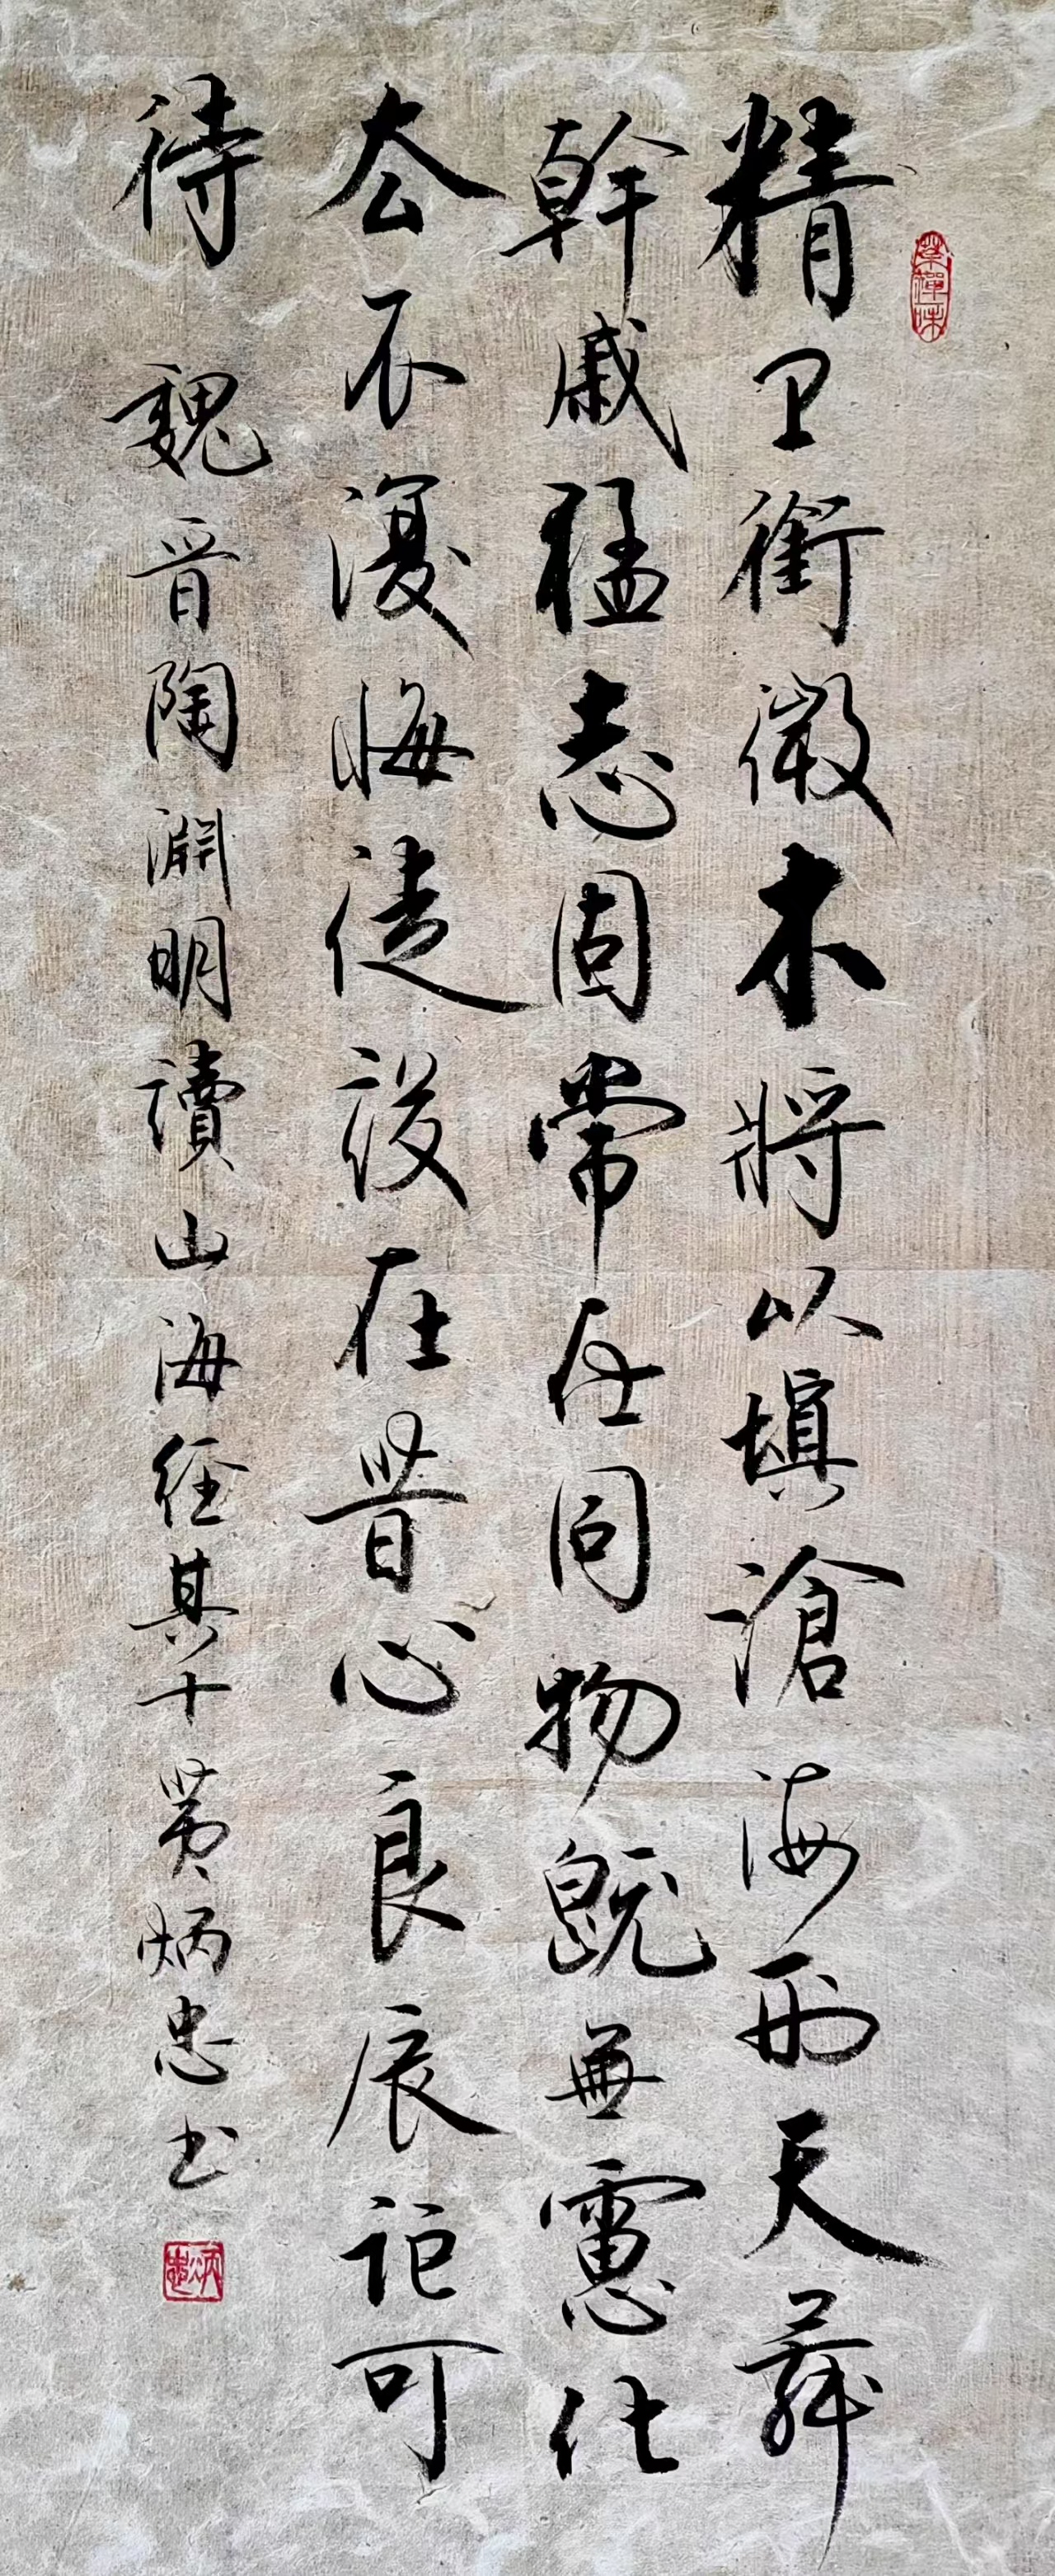 茶禪味
精卫銜微木將以填滄海刑天舞
幹戚猛志固常在同物既無慮化
去不復悔徒設在昔心良辰詎可
待 魏晋陶淵明讀山海经其十 黄炳忠书
炳忠